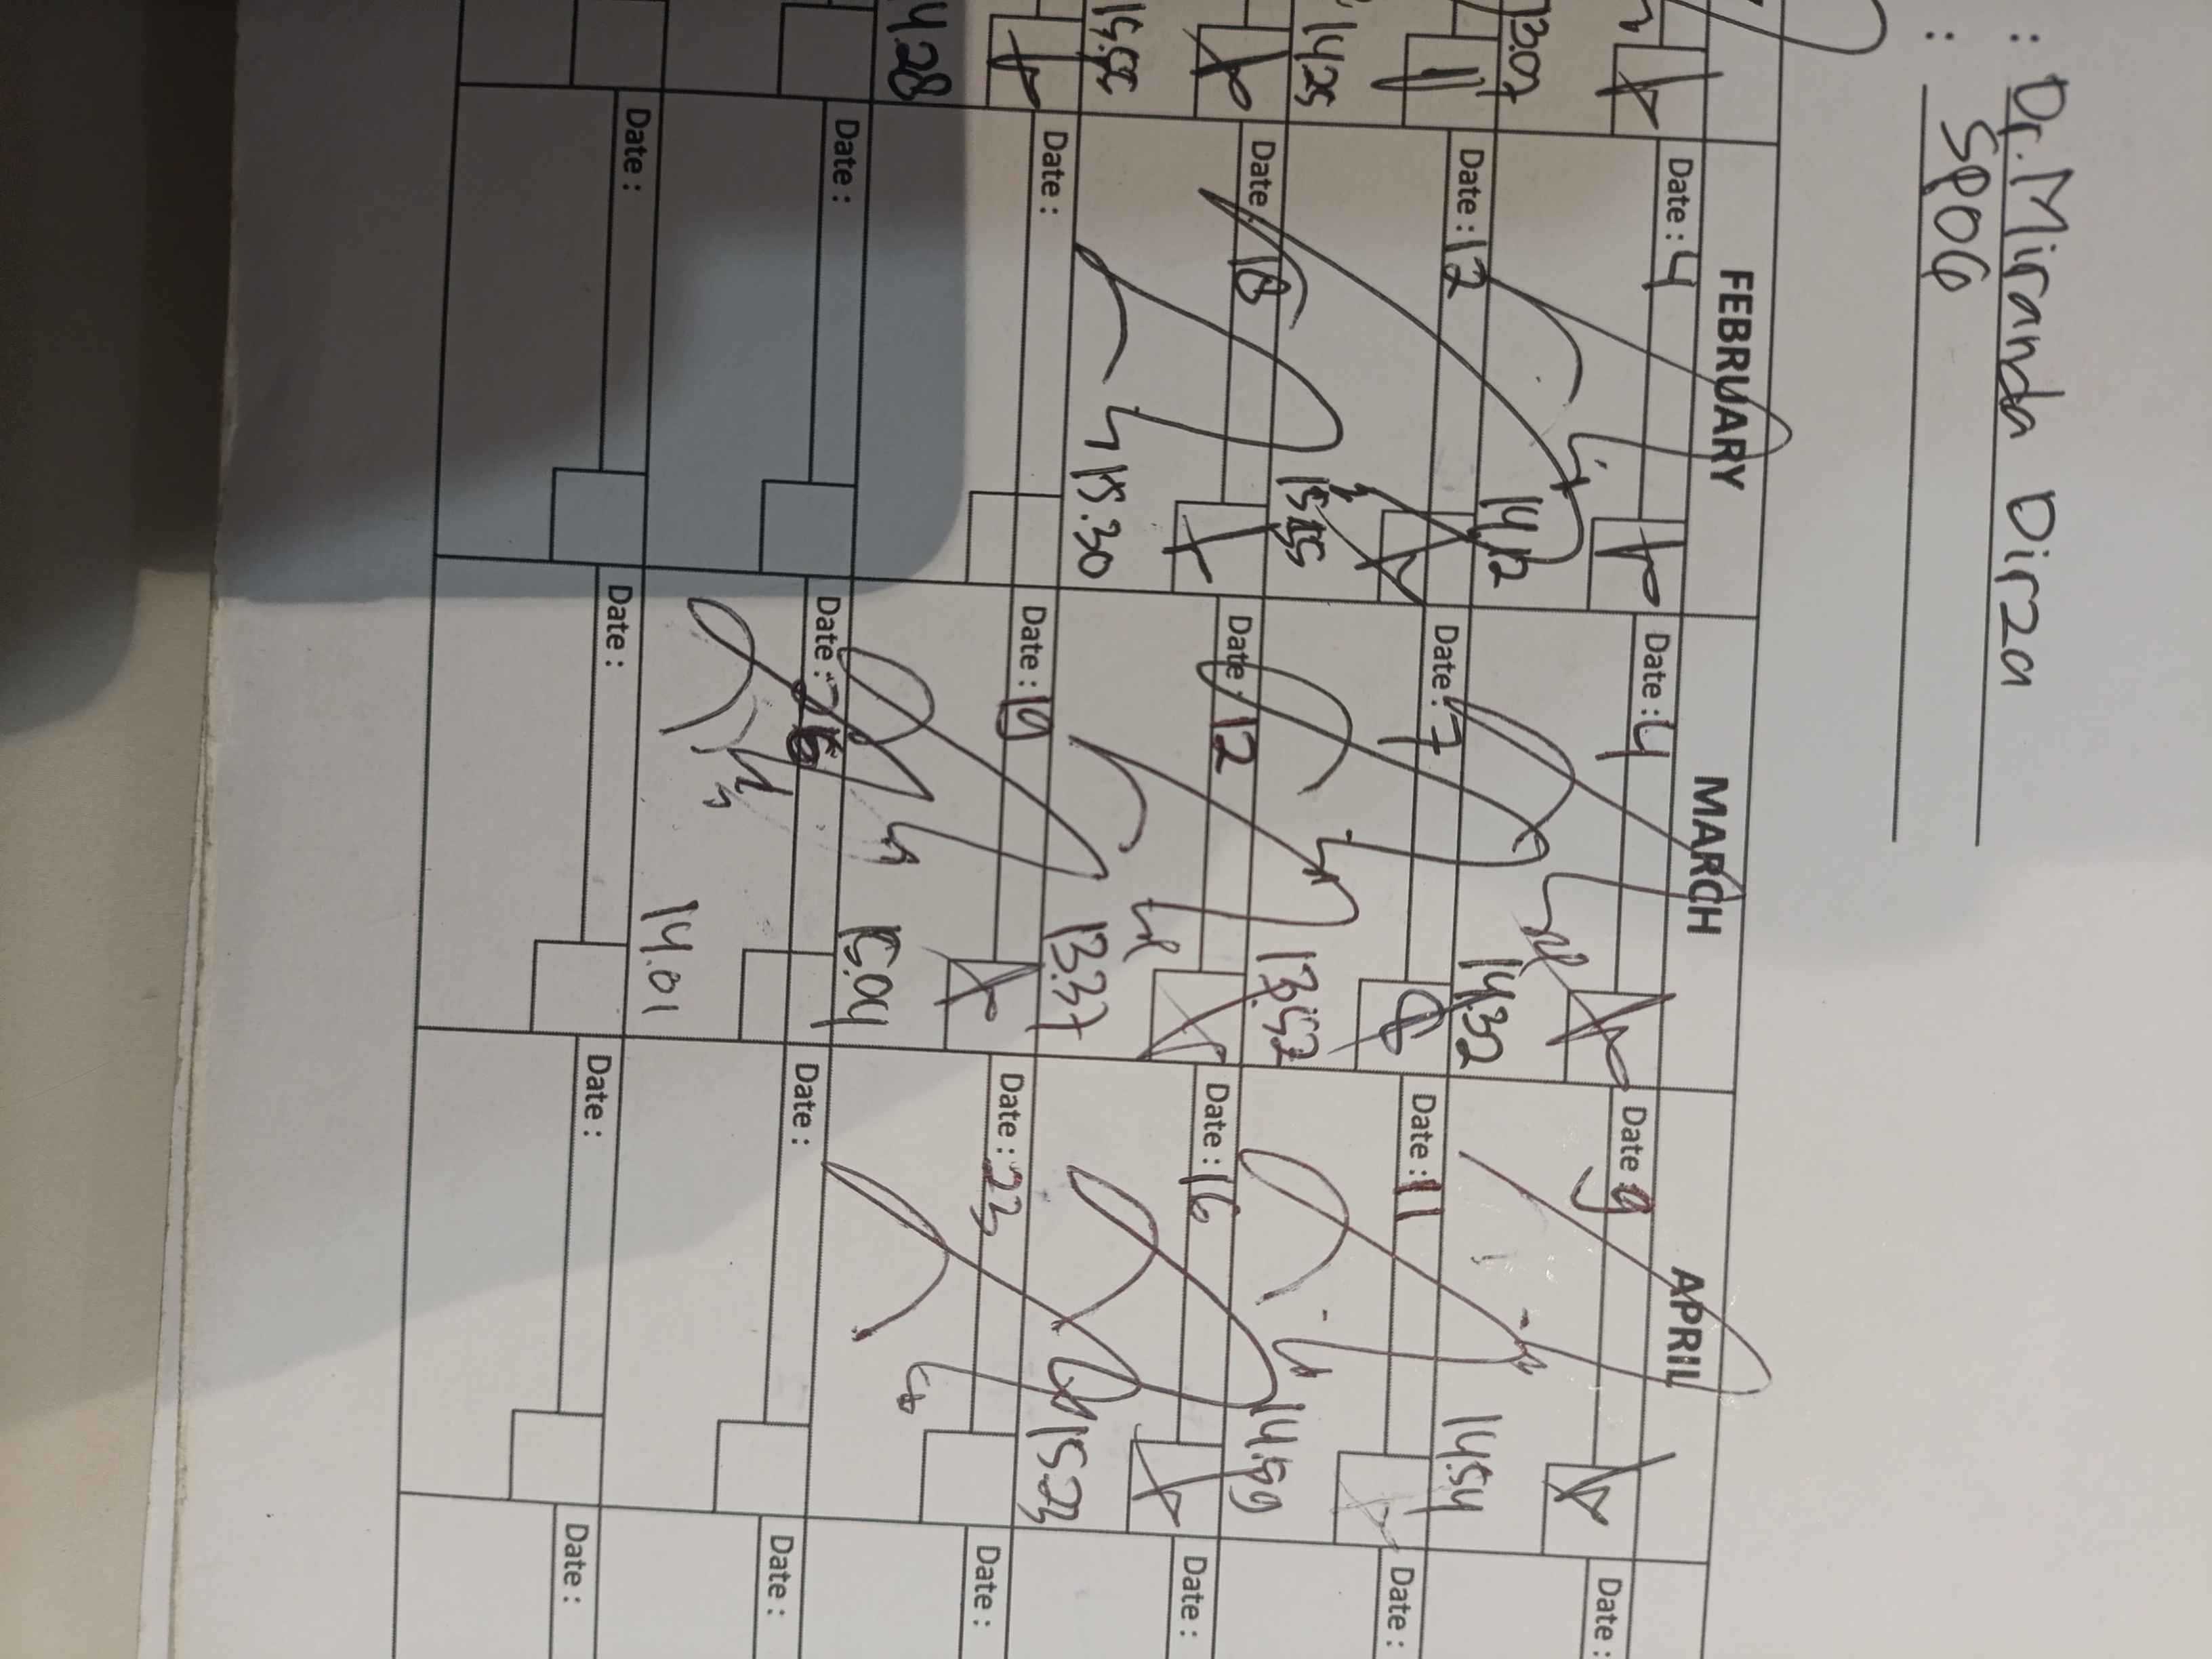 : Dr. Miranda Dirza
: SPOG
FEBRUARY MARCH APRIL
Date : 4 Date : 4 Date 9 Date :
13.07 14.12 14.32 14.54
Date : 12 Date : 7 Date : 11 Date :
14.25 15.55 13.52 14.59
Date : 18 Date : 12 Date : 16 Date :
15.30 13.37 15.23
Date : Date : 19 Date : 23 Date :
14.28 15.04
Date : Date : Date : Date :
14.01
Date : Date : Date : Date :